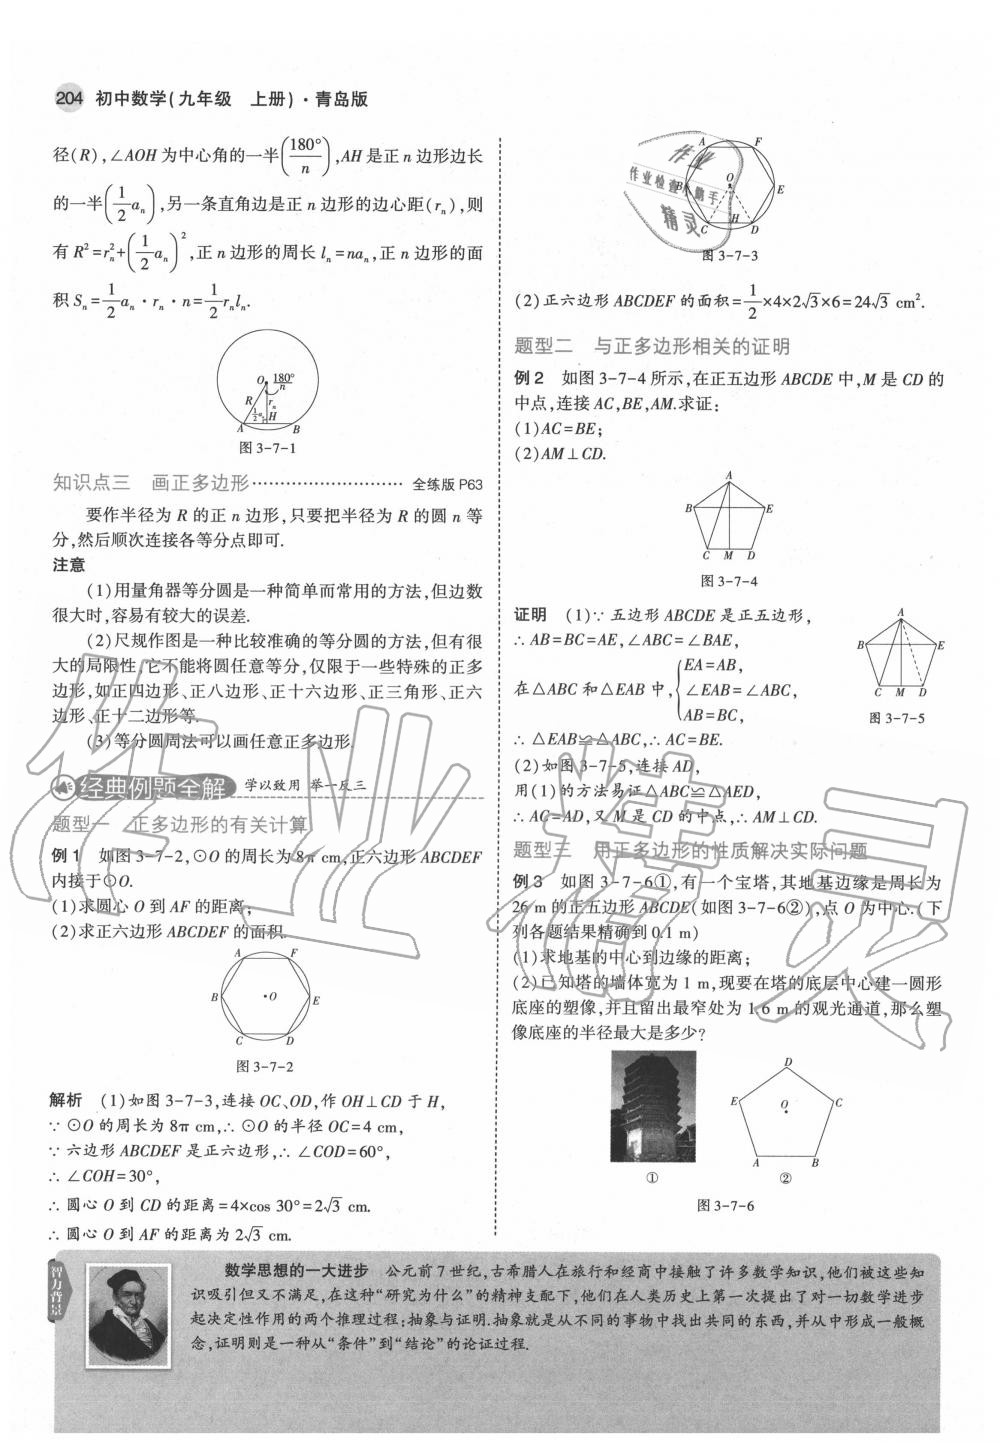 204 初中数学(九年级 上册)·青岛版
径(R),∠AOH为中心角的一半(180°/n),AH是正n边形边长
的一半(1/2 aₙ),另一条直角边是正n边形的边心距(rₙ),则
有R²=rₙ²+(1/2 aₙ)²,正n边形的周长lₙ=naₙ,正n边形的面
积Sₙ=1/2 aₙ·rₙ·n=1/2 rₙlₙ.
O 180°/n
R rₙ
1/2 aₙ H
A B
图3-7-1
知识点三 画正多边形………………………全练版P63
要作半径为R的正n边形,只要把半径为R的圆n等
分,然后顺次连接各等分点即可.
注意
(1)用量角器等分圆是一种简单而常用的方法,但边数
很大时,容易有较大的误差.
(2)尺规作图是一种比较准确的等分圆的方法,但有很
大的局限性,它不能将圆任意等分,仅限于一些特殊的正多
边形,如正四边形、正八边形、正十六边形、正三角形、正六
边形、正十二边形等.
(3)等分圆周法可以画任意正多边形.
经典例题全解 学以致用 举一反三
题型一 正多边形的有关计算
例1 如图3-7-2,⊙O的周长为8π cm,正六边形ABCDEF
内接于⊙O.
(1)求圆心O到AF的距离;
(2)求正六边形ABCDEF的面积.
A F
B ·O E
C D
图3-7-2
解析 (1)如图3-7-3,连接OC、OD,作OH⊥CD于H,
∵⊙O的周长为8π cm,∴⊙O的半径OC=4 cm,
∵六边形ABCDEF是正六边形,∴∠COD=60°,
∴∠COH=30°,
∴圆心O到CD的距离=4×cos 30°=2√3 cm.
∴圆心O到AF的距离为2√3 cm.
A F
B O E
C H D
图3-7-3
作业
作业检查小助手
精灵
(2)正六边形ABCDEF的面积=1/2×4×2√3×6=24√3 cm².
题型二 与正多边形相关的证明
例2 如图3-7-4所示,在正五边形ABCDE中,M是CD的
中点,连接AC,BE,AM.求证:
(1)AC=BE;
(2)AM⊥CD.
A
B E
C M D
图3-7-4
证明 (1)∵五边形ABCDE是正五边形,
∴AB=BC=AE,∠ABC=∠BAE,
在△ABC和△EAB中,{EA=AB,
∠EAB=∠ABC,
AB=BC,
∴△EAB≌△ABC,∴AC=BE.
(2)如图3-7-5,连接AD,
用(1)的方法易证△ABC≌△AED,
∴AC=AD,又M是CD的中点,∴AM⊥CD.
A
B E
C M D
图3-7-5
题型三 用正多边形的性质解决实际问题
例3 如图3-7-6①,有一个宝塔,其地基边缘是周长为
26 m的正五边形ABCDE(如图3-7-6②),点O为中心.(下
列各题结果精确到0.1 m)
(1)求地基的中心到边缘的距离;
(2)已知塔的墙体宽为1 m,现要在塔的底层中心建一圆形
底座的塑像,并且留出最窄处为1.6 m的观光通道,那么塑
像底座的半径最大是多少?
D
E O C
A B
① ②
图3-7-6
作业精灵
智力背景
数学思想的一大进步 公元前7世纪,古希腊人在旅行和经商中接触了许多数学知识,他们被这些知
识吸引但又不满足,在这种“研究为什么”的精神支配下,他们在人类历史上第一次提出了对一切数学进步
起决定性作用的两个推理过程:抽象与证明.抽象就是从不同的事物中找出共同的东西,并从中形成一般概
念,证明则是一种从“条件”到“结论”的论证过程.